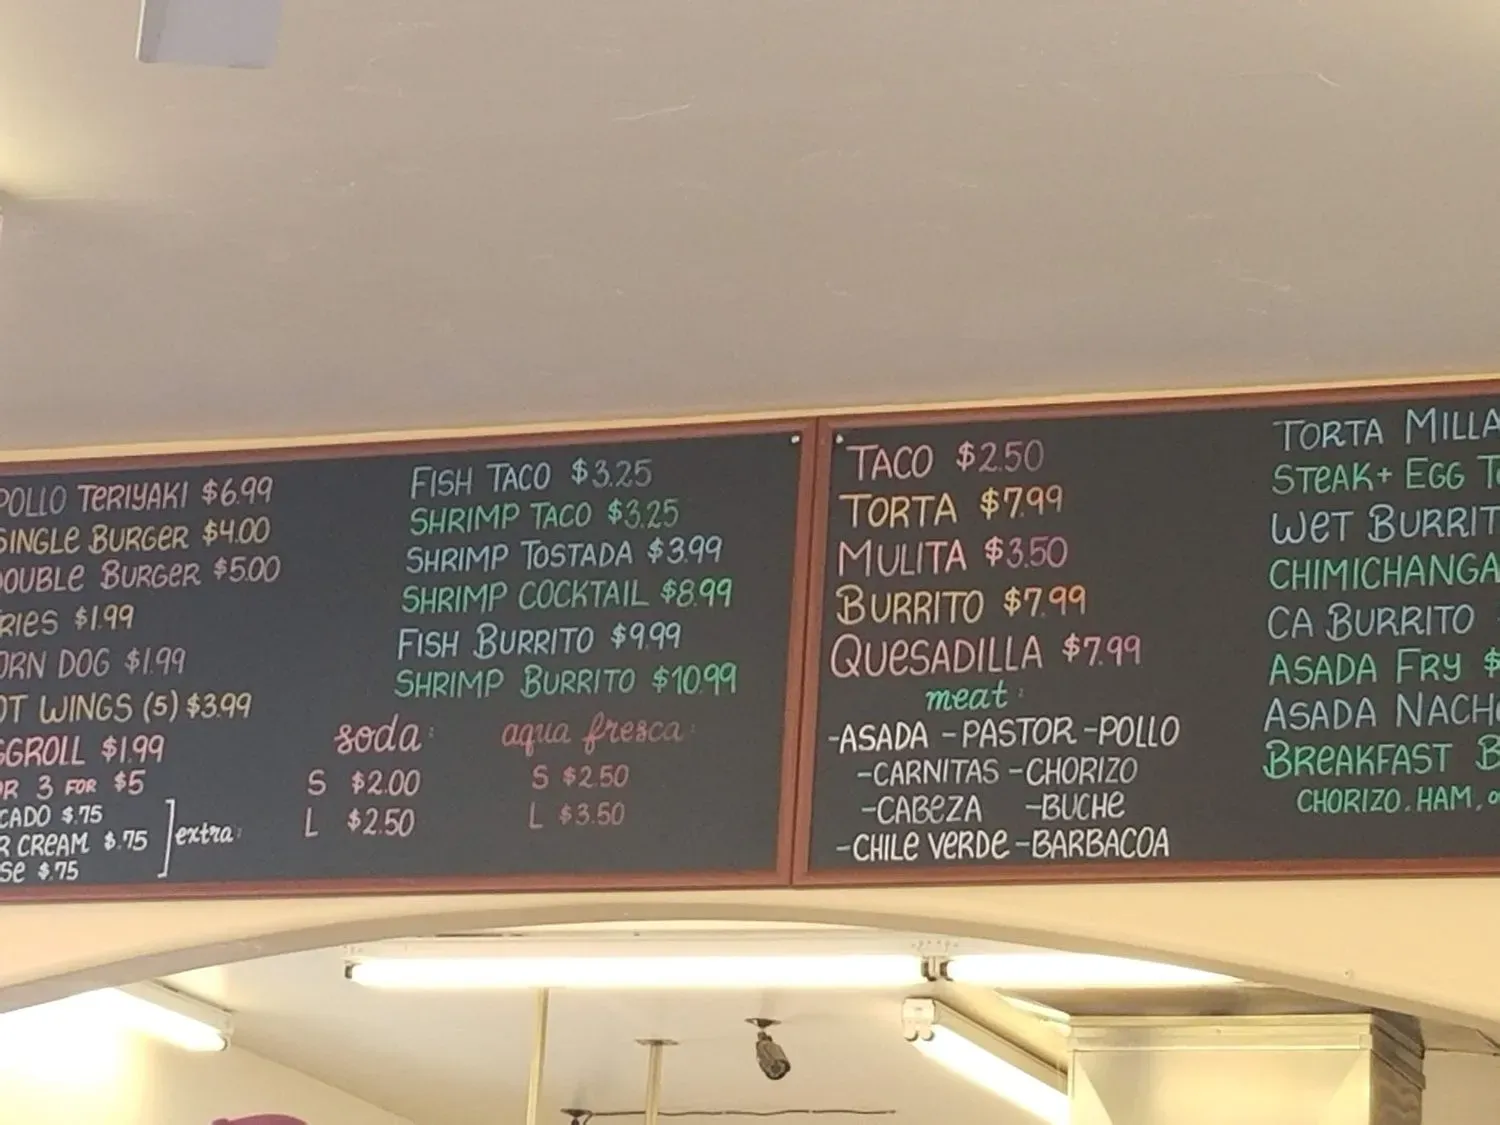 POLLO TERIYAKI $6.99
SINGLE BURGER $4.00
DOUBLE BURGER $5.00
RIES $1.99
ORN DOG $1.99
OT WINGS (5) $3.99
GGROLL $1.99
OR 3 FOR $5
CADO $.75
R CREAM $.75
SE $.75
extra:
FISH TACO $3.25
SHRIMP TACO $3.25
SHRIMP TOSTADA $3.99
SHRIMP COCKTAIL $8.99
FISH BURRITO $9.99
SHRIMP BURRITO $10.99
soda:
S $2.00
L $2.50
aqua fresca:
S $2.50
L $3.50
TACO $2.50
TORTA $7.99
MULITA $3.50
BURRITO $7.99
QUESADILLA $7.99
meat:
-ASADA -PASTOR -POLLO
-CARNITAS -CHORIZO
-CABEZA -BUCHE
-CHILE VERDE -BARBACOA
TORTA MILLA
STEAK + EGG T
WET BURRIT
CHIMICHANGA
CA BURRITO
ASADA FRY $
ASADA NACH
BREAKFAST B
CHORIZO, HAM, o